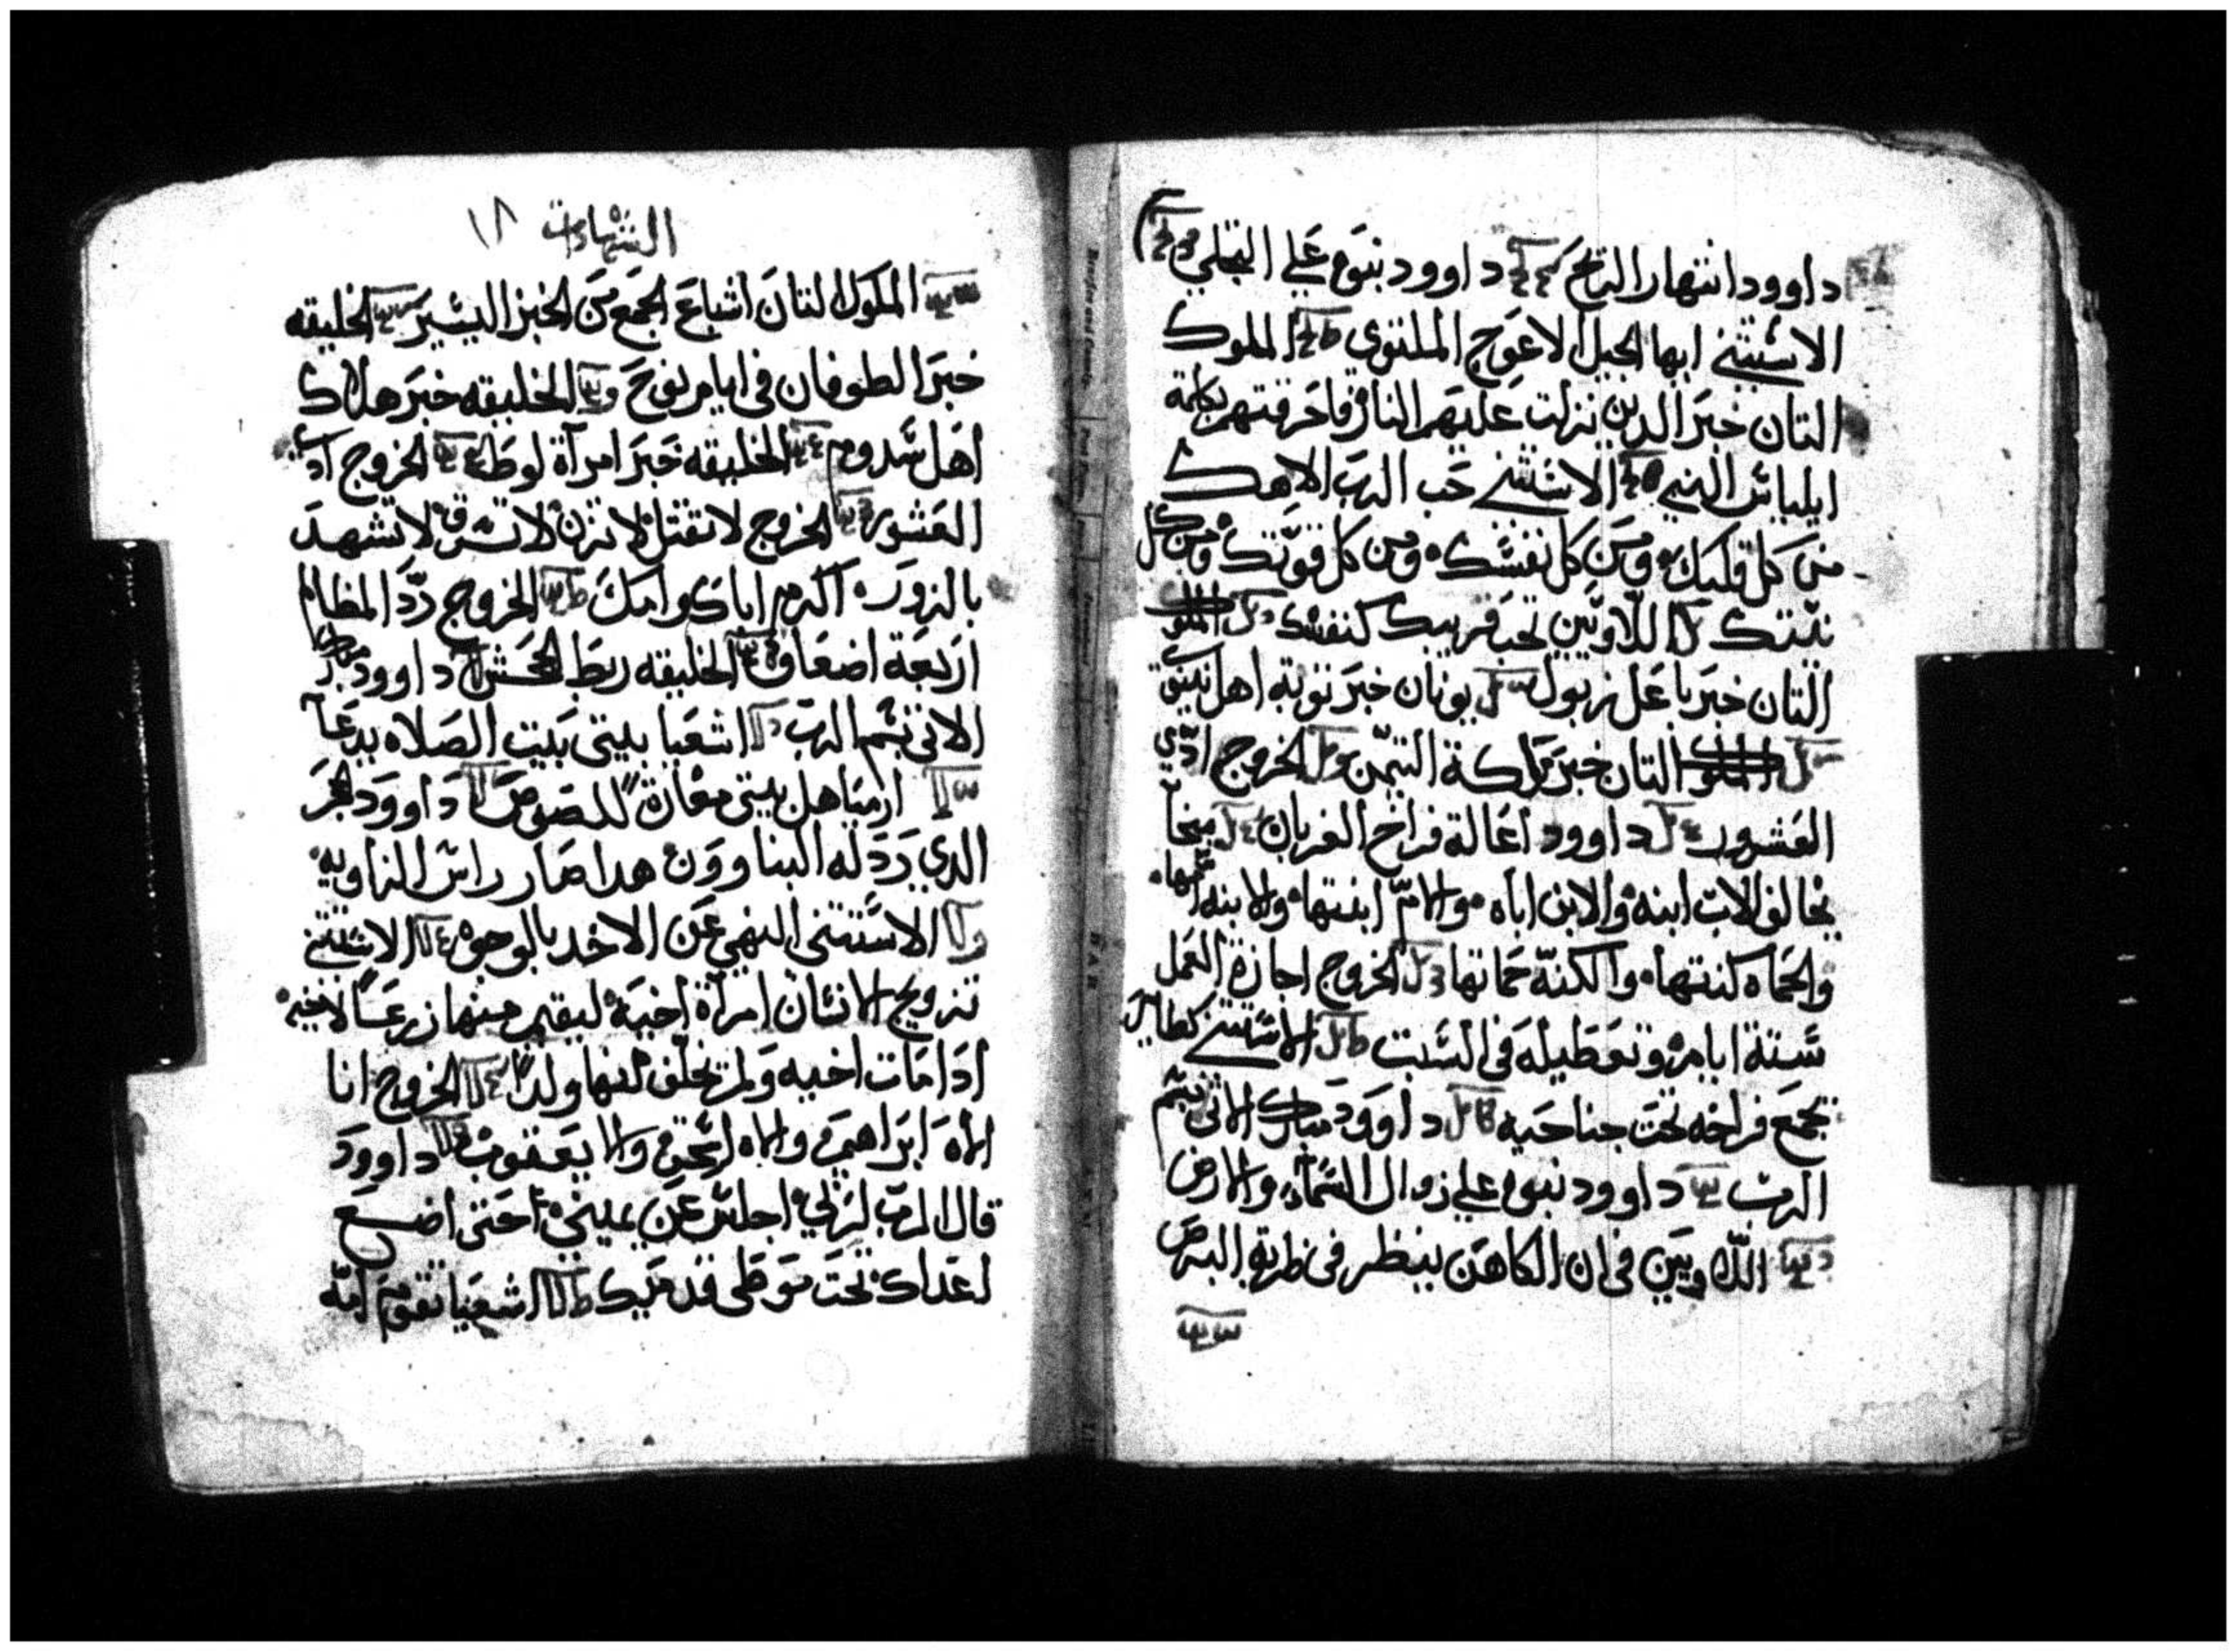 داوود انتهار الريح داوود نبوه علي التجلي
الاستثني ايها الجيل الاعوج الملتوي الملوك
التان خبر الدين نزلت عليهم النار فاحرقتهم بكلمة
ايلياس النبي الاستثني حب الرب الاهك
من كل قلبك ومن كل نفسك ومن كل قوتك ومن كل
نيتك اللاويين تحب قريبك كنفسك الملوك
التان خبر باعل زبول يونان خبر توبة اهل نينوي
الملوك التان خبر ملكة التيمن الخروج ادي
العشور داوود اعالة فراخ الغربان ميخا
يخالف الاب ابنه والابن اباه والام ابنتها والابنه امها
والحماه كنتها والكنه حماتها الخروج اجازة العمل
ستة ايام وتعطيله في السبت الاستثني كطاير
يجمع فراخه تحت جناحيه داوود مبارك الاتي بسم
الرب داوود نبوه علي زوال السماء والارض
اللاويين في ان الكاهن ينظر في طربة البرص
الشهادات ١٨
الملوك التان اشباع الجمع من الخبز اليسير الخليقه
خبر الطوفان في ايام نوح الخليقه خبر هلاك
اهل سدوم الخليقه خبر امراة لوط الخروج اد
العشور الخروج لا تقتل لا تزن لا تسرق لا تشهد
بالزور اكرم اباك وامك الخروج رد المظالم
اربعة اضعاف الخليقه ربط الجحش داوود مبارك
الاتي بسم الرب اشعيا بيتي بيت الصلاه يدعا
ارميا هل بيتي مغارة للصوص داوود الحجر
الدي ردله البناوون هدا صار راس الزاويه
الاستثني النهي عن الاخد بالوجوه الاستثني
تزويج الانسان امراة اخيه ليقيم منها زرعا لاخيه
ادا مات اخيه ولم يخلف منها ولدا الخروج انا
الاه ابراهيم والاه اسحق والا يعقوب داوود
قال الرب لربي اجلس عن يميني حتي اضع
اعداك تحت موطي قدميك اشعيا تقوم امه